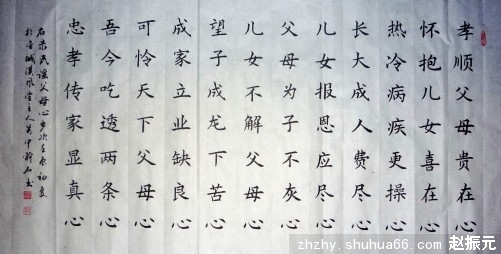 孝顺父母贵在心
怀抱儿女喜在心
热冷病疾更操心
长大成人费尽心
儿女报恩应尽心
父母为子不灰心
儿女不解父母心
望子成龙下苦心
成家立业缺良心
可怜天下父母心
吾今吃透两条心
忠孝传家显真心
右录民谣父母心岁次壬辰初夏
汉风堂主人
zhzhy.shuhua66.com 赵振元